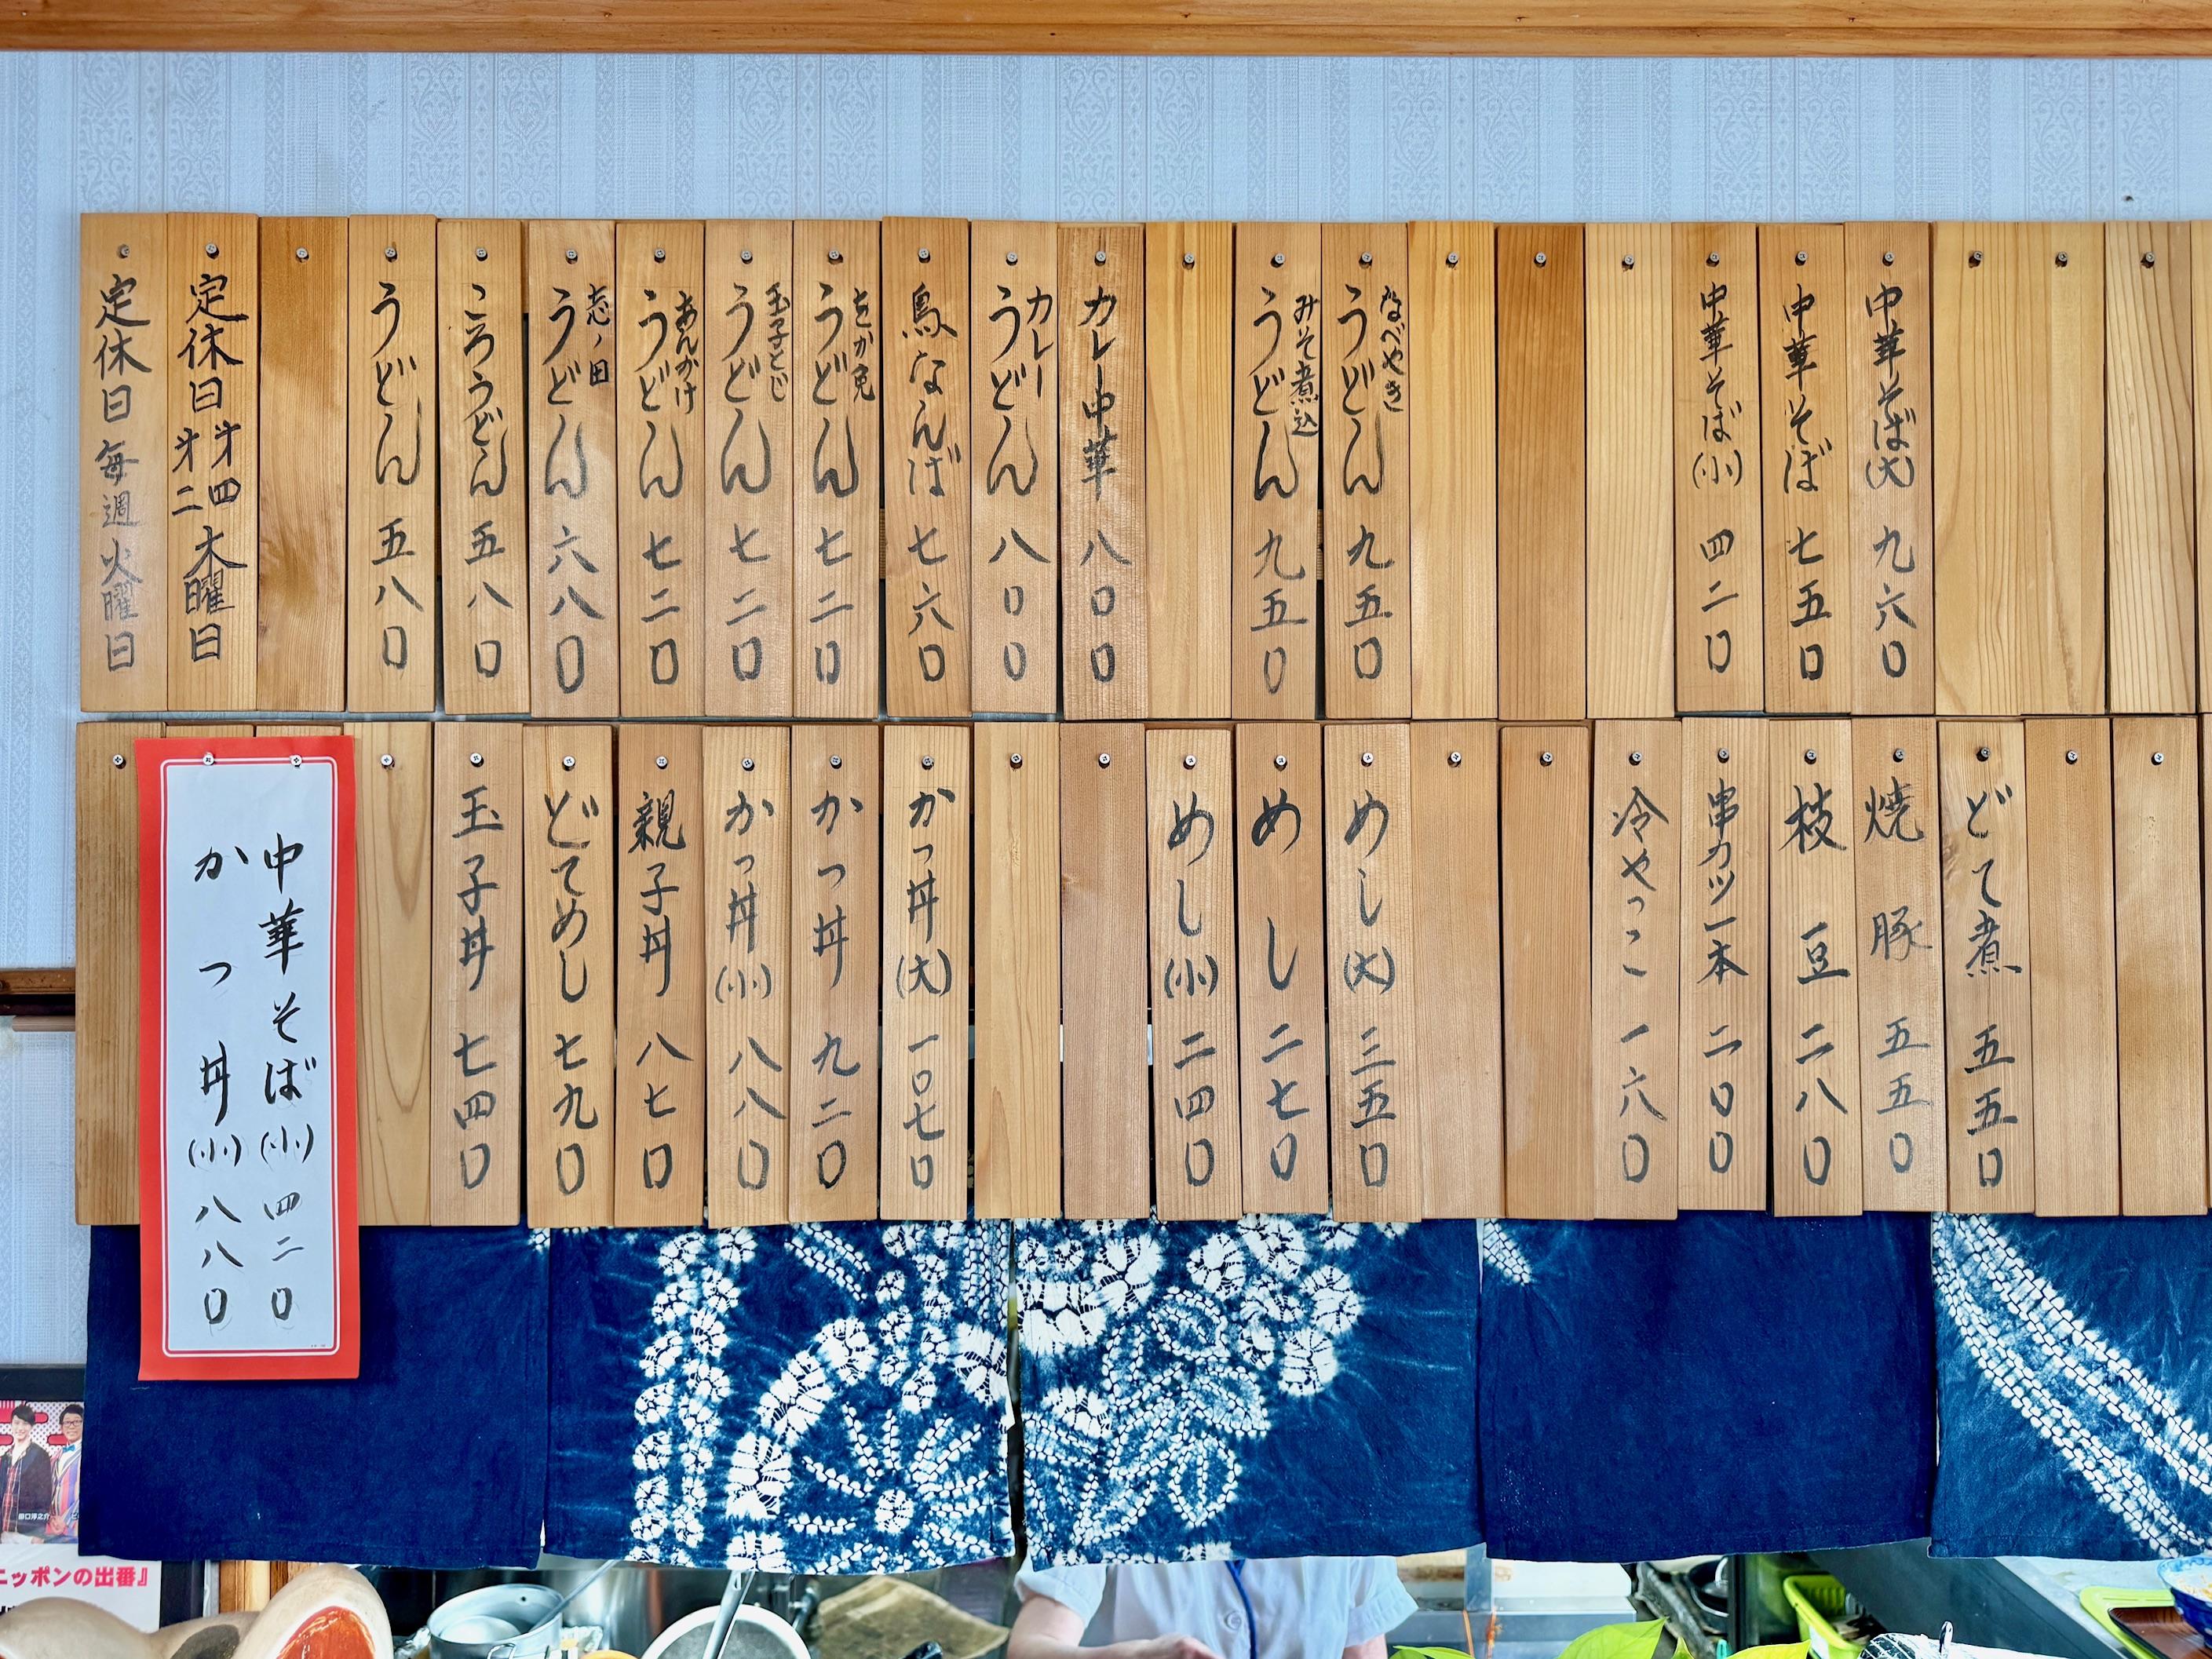 中華そば(大) 九六〇
中華そば 七五〇
中華そば(小) 四二〇
なべやき
うどん 九五〇
みそ煮込
うどん 九五〇
カレー中華 八〇〇
カレー
うどん 八〇〇
鳥なんば 七六〇
うどん 七二〇
玉子とじ
うどん 七二〇
あんかけ
うどん 七二〇
志ノ田
うどん 六八〇
ころうどん 五八〇
うどん 五八〇
定休日 㐧四
㐧二 木曜日
定休日 毎週火曜日
どて煮 五五〇
焼豚 五五〇
枝豆 二八〇
串カツ一本 二〇〇
冷やっこ 一六〇
めし(大) 三五〇
めし 二七〇
めし(小) 二四〇
かつ丼(大) 一〇七〇
かつ丼 九二〇
かつ丼(小) 八八〇
親子丼 八七〇
どてめし 七九〇
玉子丼 七四〇
中華そば(小) 四二〇
かつ丼(小) 八八〇
ニッポンの出番』